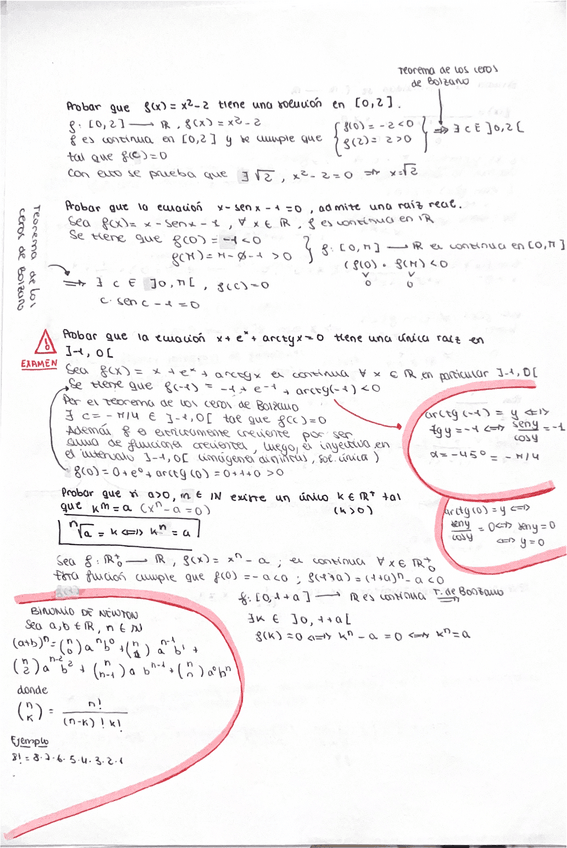 Teorema de los ceros
de Bolzano
Probar que f(x) = x²-2 tiene una solución en [0,2].
f: [0,2] → ℝ, f(x) = x²-2
f es continua en [0,2] y se cumple que { f(0) = -2 < 0
f(2) = 2 > 0 } ⇒ ∃ c ∈ ]0,2[
tal que f(c) = 0
Con esto se prueba que ∃ √2, x²-2 = 0 ⇒ x = √2
Teorema de los
ceros de Bolzano
Probar que la ecuación x - sen x - 1 = 0, admite una raíz real.
Sea f(x) = x - sen x - 1, ∀ x ∈ ℝ, f es continua en ℝ
Se tiene que f(0) = -1 < 0
f(π) = π - 0 - 1 > 0 } f: [0,π] → ℝ es continua en [0,π]
(f(0) · f(π) < 0
0 0
⇒ ∃ c ∈ ]0,π[, f(c) = 0
c - sen c - 1 = 0
EXAMEN
Probar que la ecuación x + eˣ + arctg x = 0 tiene una única raíz en
]-1,0[
Sea f(x) = x + eˣ + arctg x es continua ∀ x ∈ ℝ en particular ]-1,0[
Se tiene que f(-1) = -1 + e⁻¹ + arctg(-1) < 0
Por el teorema de los ceros de Bolzano
∃ c = -π/4 ∈ ]-1,0[ tal que f(c) = 0
Además f es estrictamente creciente por ser
suma de funciones crecientes, luego, es inyectiva en
el intervalo ]-1,0[ (imágenes distintas, sol. única)
f(0) = 0 + e⁰ + arctg(0) = 0+1+0 > 0
arctg(-1) = y ⇔
tg y = -1 ⇔ sen y / cos y = -1
α = -45° = -π/4
arctg(0) = y ⇔
sen y / cos y = 0 ⇔ sen y = 0
⇔ y = 0
Probar que si a>0, n ∈ ℕ existe un único k ∈ ℝ⁺ tal
que kⁿ = a (xⁿ - a = 0) (k>0)
ⁿ√a = k ⇔ kⁿ = a
Sea f: ℝ₀⁺ → ℝ, f(x) = xⁿ - a; es continua ∀ x ∈ ℝ₀⁺
Esta función cumple que f(0) = -a < 0; f(1+a) = (1+a)ⁿ - a < 0
f: [0,1+a] → ℝ es continua T. de Bolzano
∃ k ∈ ]0,1+a[
f(k) = 0 ⇔ kⁿ - a = 0 ⇔ kⁿ = a
BINOMIO DE NEWTON
Sea a,b ∈ ℝ, n ∈ ℕ
(a+b)ⁿ = (n 0) aⁿb⁰ + (n 1) aⁿ⁻¹b¹ +
(n 2) aⁿ⁻²b² + (n n-1) a bⁿ⁻¹ + (n n) a⁰bⁿ
donde
(n k) = n! / (n-k)! k!
Ejemplo
8! = 8·7·6·5·4·3·2·1